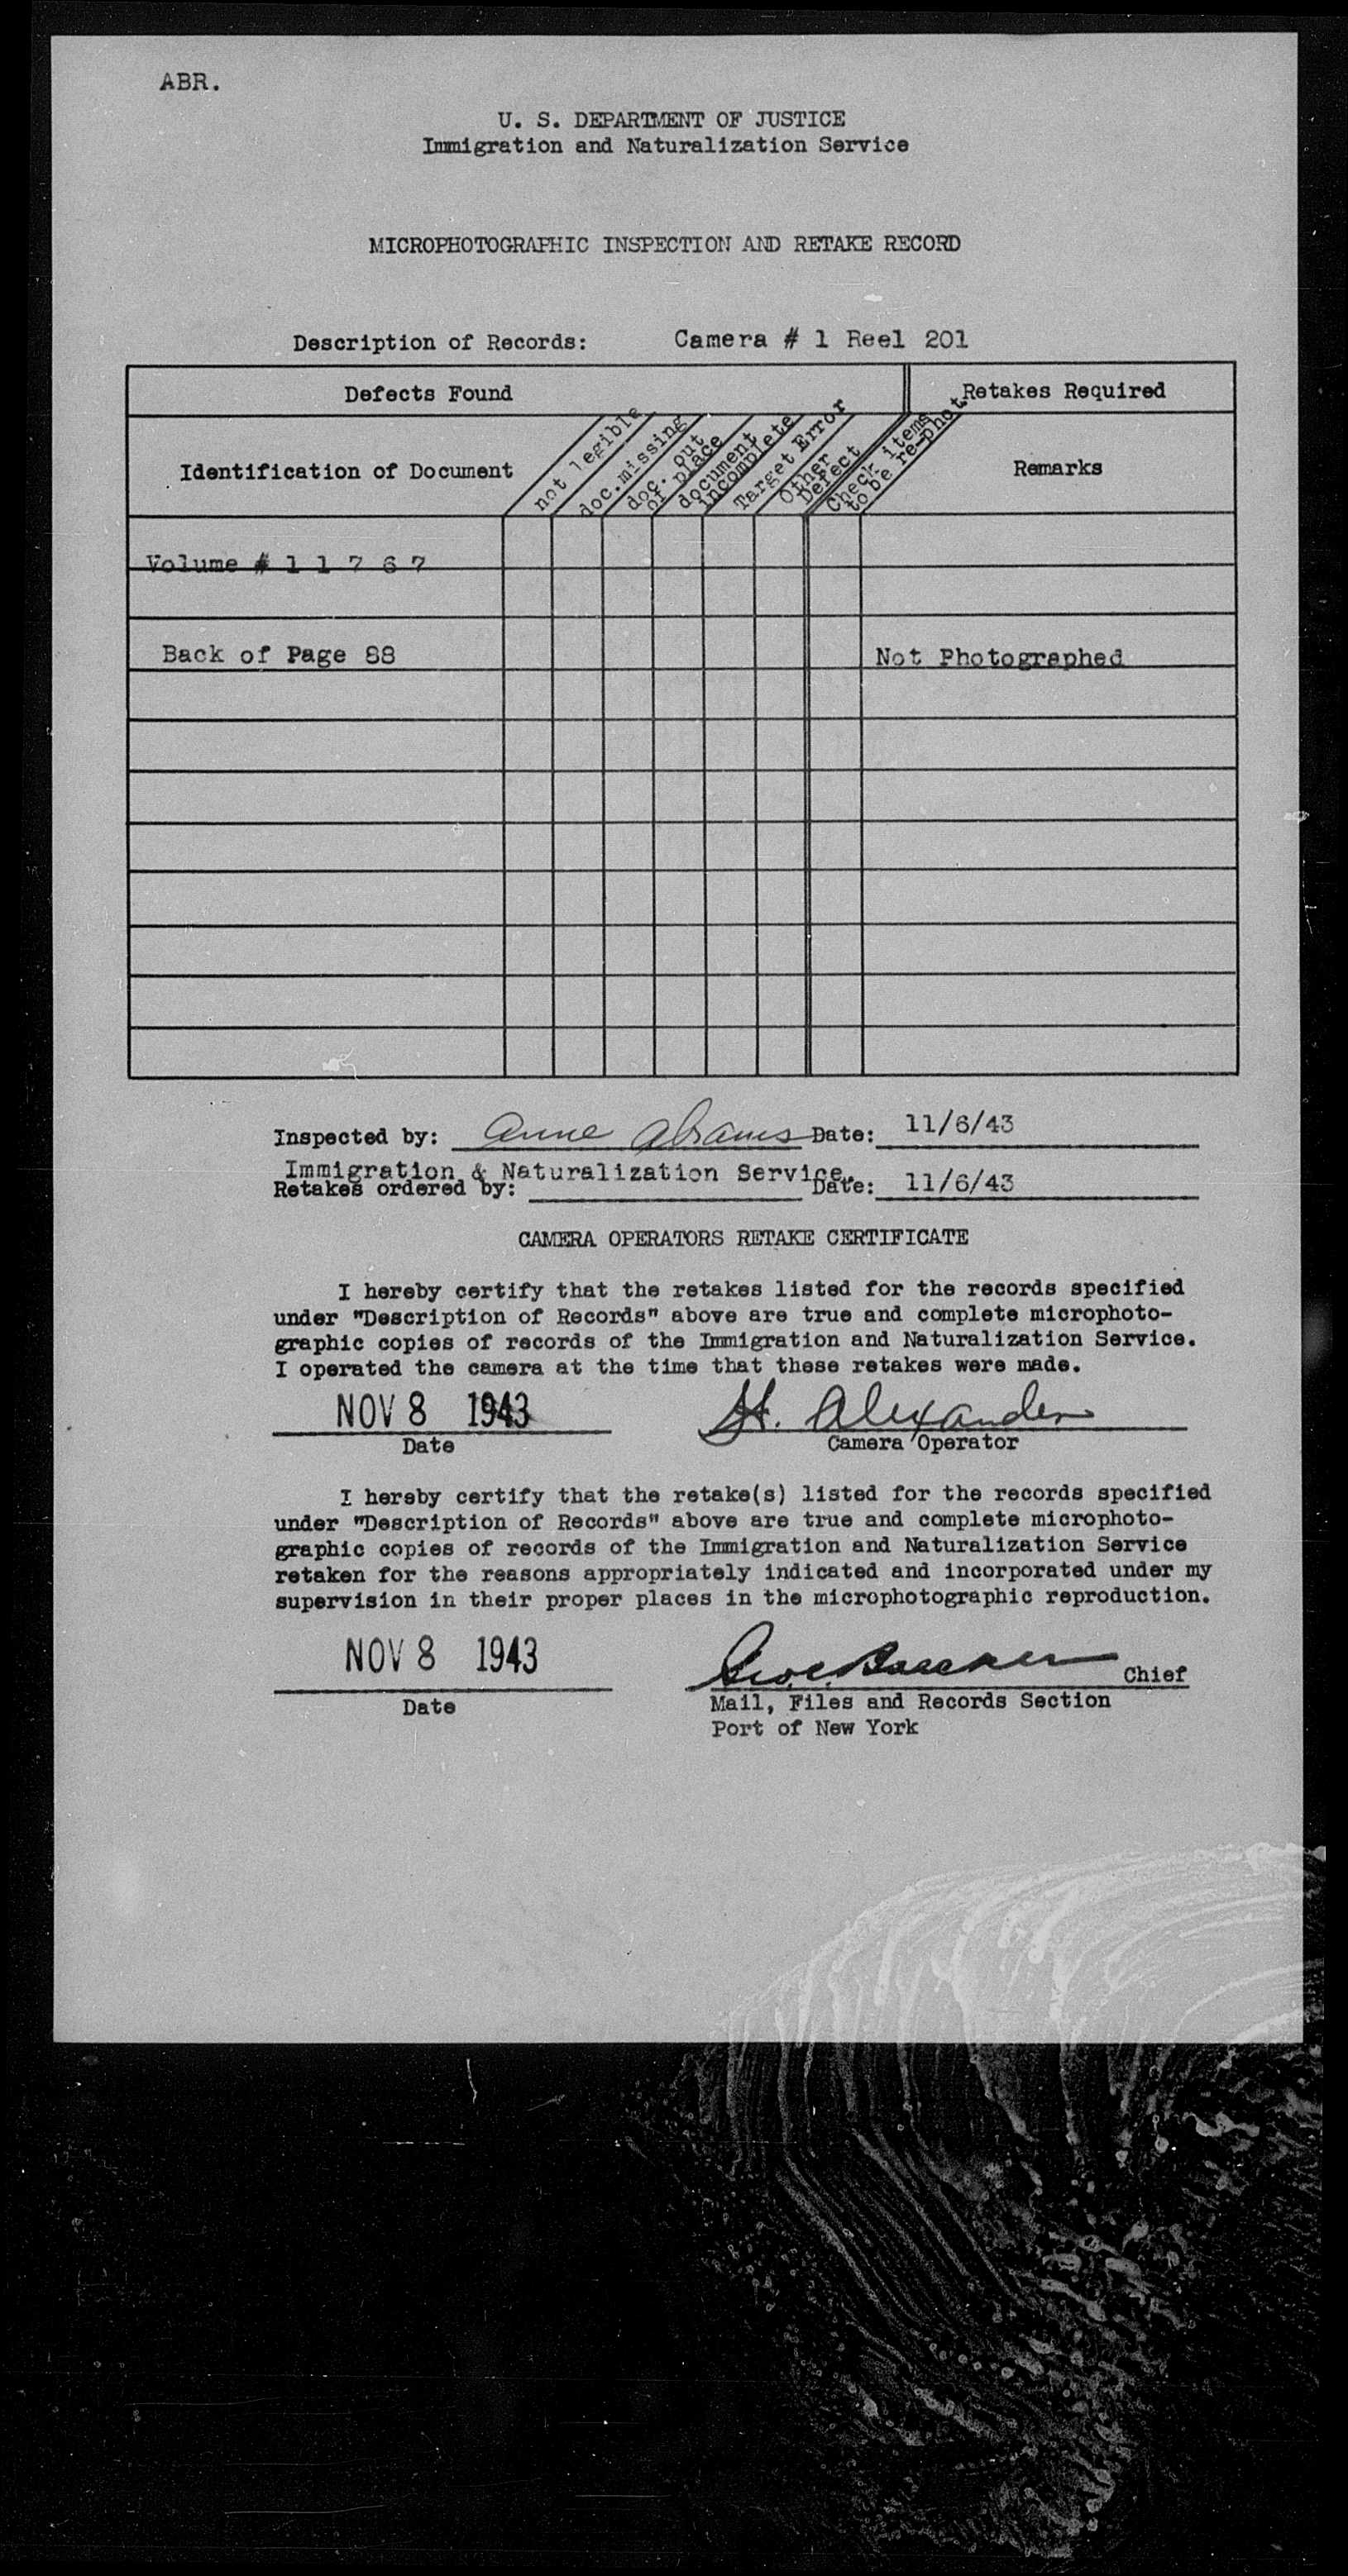 ABR.
U. S. DEPARTMENT OF JUSTICE
Immigration and Naturalization Service
MICROPHOTOGRAPHIC INSPECTION AND RETAKE RECORD
Description of Records: Camera # 1 Reel 201
Defects Found
Retakes Required
Identification of Document
not legible
doc.missing
doc. out
of place
document
incomplete
Target Error
Other
Defect
Check items
to be re-phot.
Remarks
Volume # 1 1 7 6 7
Back of Page 88 Not Photographed
Inspected by: Anne Abrams Date: 11/6/43
Immigration & Naturalization Service.
Retakes ordered by: Date: 11/6/43
CAMERA OPERATORS RETAKE CERTIFICATE
I hereby certify that the retakes listed for the records specified
under "Description of Records" above are true and complete microphoto-
graphic copies of records of the Immigration and Naturalization Service.
I operated the camera at the time that these retakes were made.
NOV 8 1943 H. Alexander
Date Camera Operator
I hereby certify that the retake(s) listed for the records specified
under "Description of Records" above are true and complete microphoto-
graphic copies of records of the Immigration and Naturalization Service
retaken for the reasons appropriately indicated and incorporated under my
supervision in their proper places in the microphotographic reproduction.
NOV 8 1943 Chief
Date Mail, Files and Records Section
Port of New York